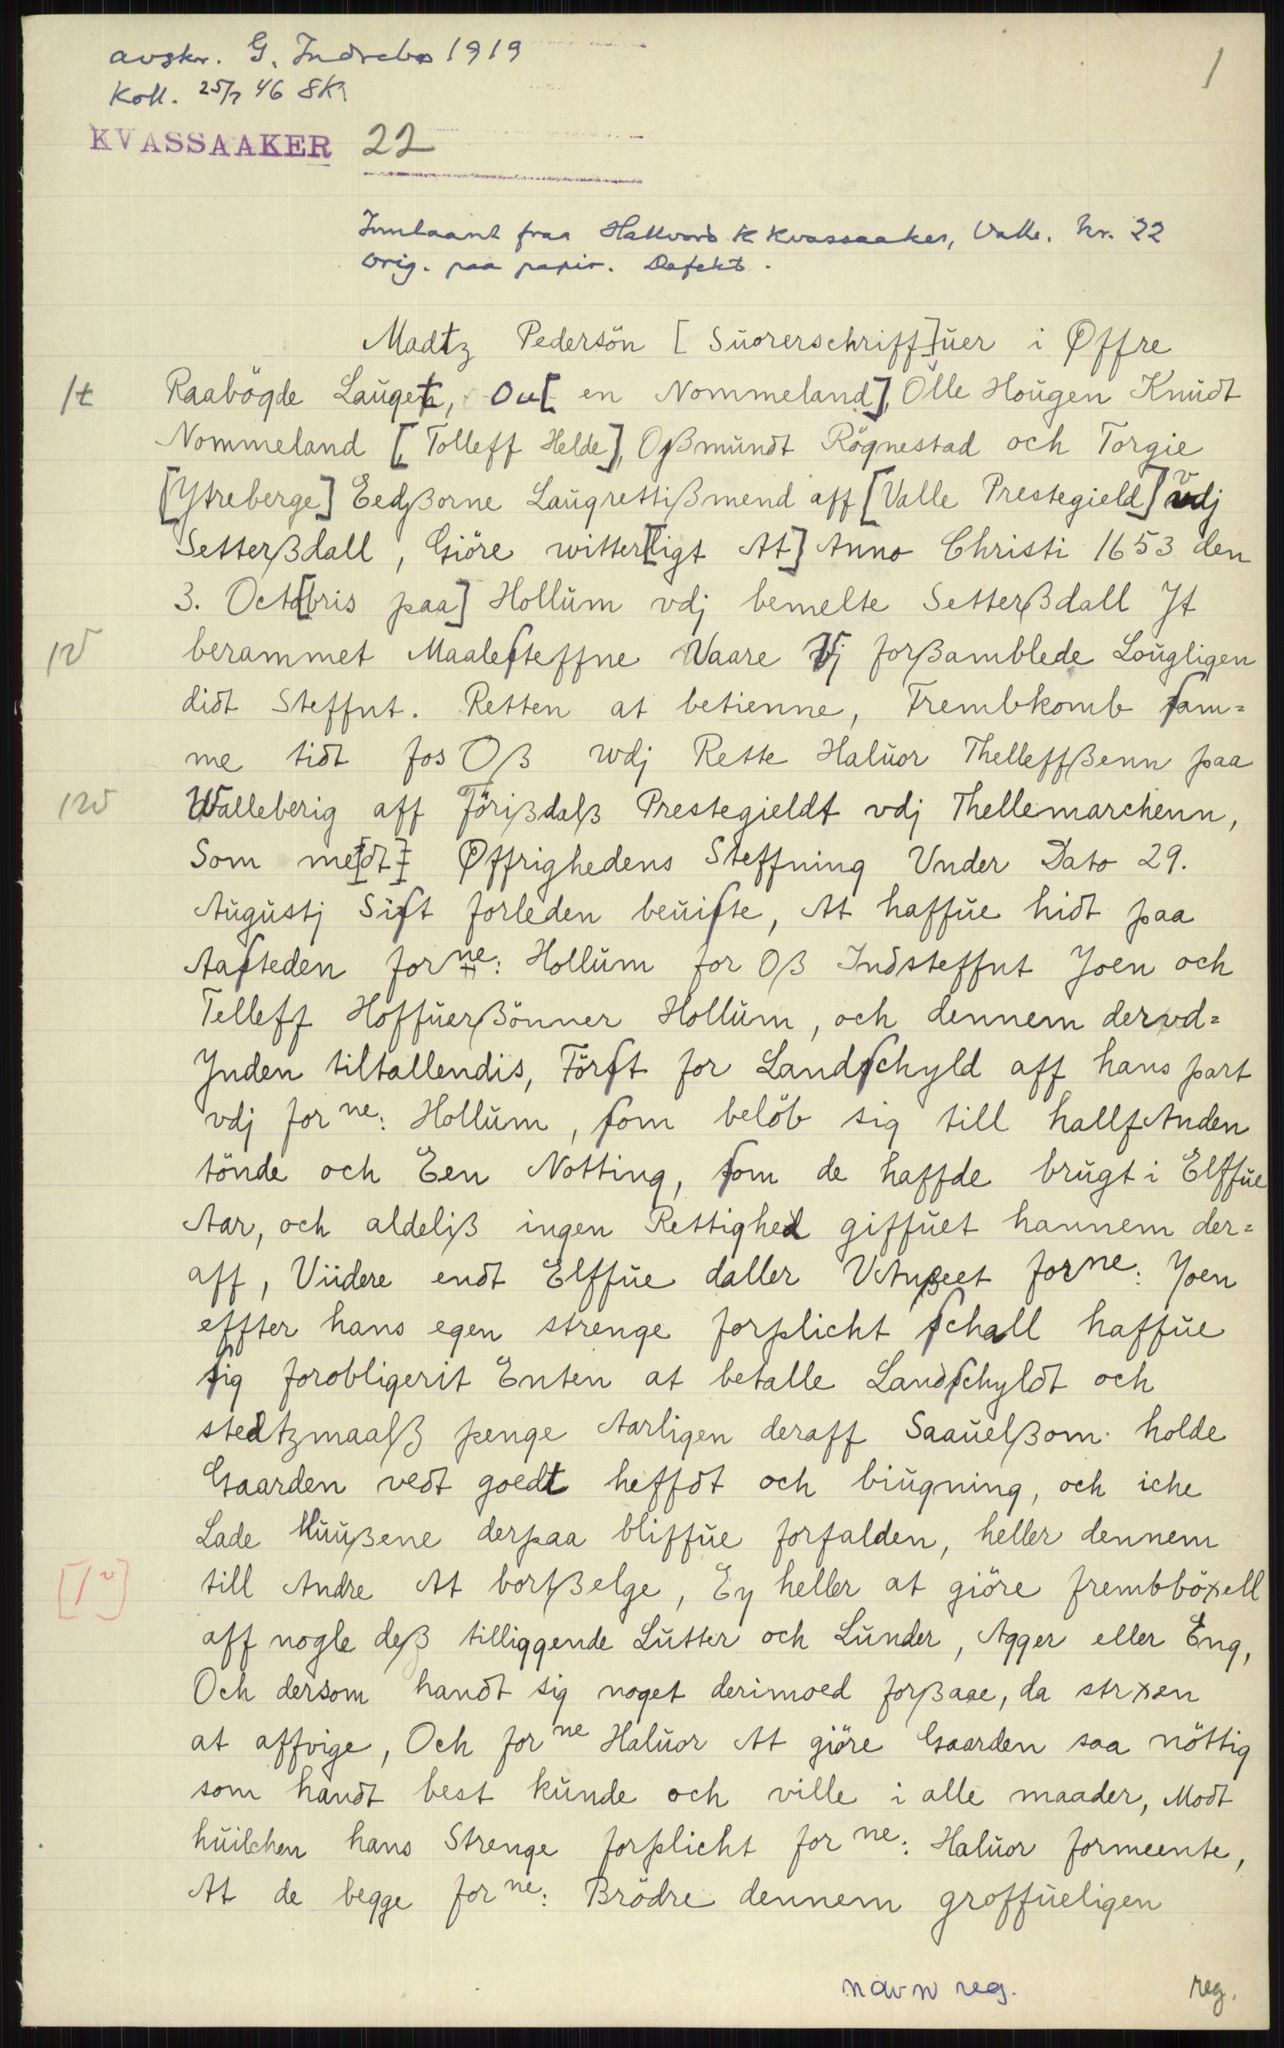 avskr. G. Indrebø 1919
1
Koll. 25/7 46 SK
KVASSAAKER 22
Innlaant fraa Hallvord K Kvassaaker, Valle. Nr. 22
Orig. paa papir. Defekt.
Madtz Pedersön [Suorerschriff]uer i Øffre
/t Raabögde Lauget, Ou[en Nommeland], Olle Hougen Knudt
Nommeland [Tolleff Helde], Oßmundt Rögnestad och Torgie
[Ytreberge] Eedßorne Laugrettißmend aff [Valle Prestegield] vdj
Setterßdall, Giöre witter[ligt At] Anno Christi 1653 den
3. Octo[bris paa] Hollum vdj bemelte Setterßdall Jt
/V berammet Maaleſteffne Vaare Vj forßamblede Lougligen
didt Steffnt. Retten at betienne, Frembkomb ſam=
me tidt for Oß wdj Rette Haluor Thelleffßenn paa
/W Walleberig aff Förißdalß Prestegieldt vdj Thellemarchenn,
Som me[dt] Øffrighedens Steffning Under Dato 29.
Augustj Siſt forleden beuiſte, At haffue hidt paa
Aaſteden for ne: Hollum for Oß Indsteffnt Joen och
Telleff Hoffuerßönner Hollum, och dennem dervd=
Jnden tiltallendis, Förſt for Landſchyld aff hans part
vdj for ne: Hollum, ſom belöb sig till hallf Anden
tönde och Een Notting, ſom de haffde brugt i Elffue
Aar, och aldeliß ingen Rettighed giffuet hannem der=
aff, Viidere endt Elffue daller Vanßeet for ne: Joen
effter hans egen strenge forplicht ſchall haffue
ſig forobligerit Enten at betalle Landſchyldt och
stedtzmaalß penge Aarligen deraff Saauelßom holde
Gaarden vedt goedt heffdt och biugning, och iche
Lade Huußene derpaa bliffue forfalden, heller dennem
[1v] till Andre At bortßelge, Ey heller at giöre frembböxell
aff nogle deß tilliggende Lutter och Lunder, Agger eller Eng,
Och dersom handt sig noget derimoed forßaae, da strxen
at affvige, Och for ne Haluor At giöre Gaarden saa nöttig
som handt best kunde och ville i alle maader, Modt
huilchen hans Strenge forplicht for ne: Haluor formeente,
At de begge for ne: Brödre dennem groffueligen
navn reg.
reg.